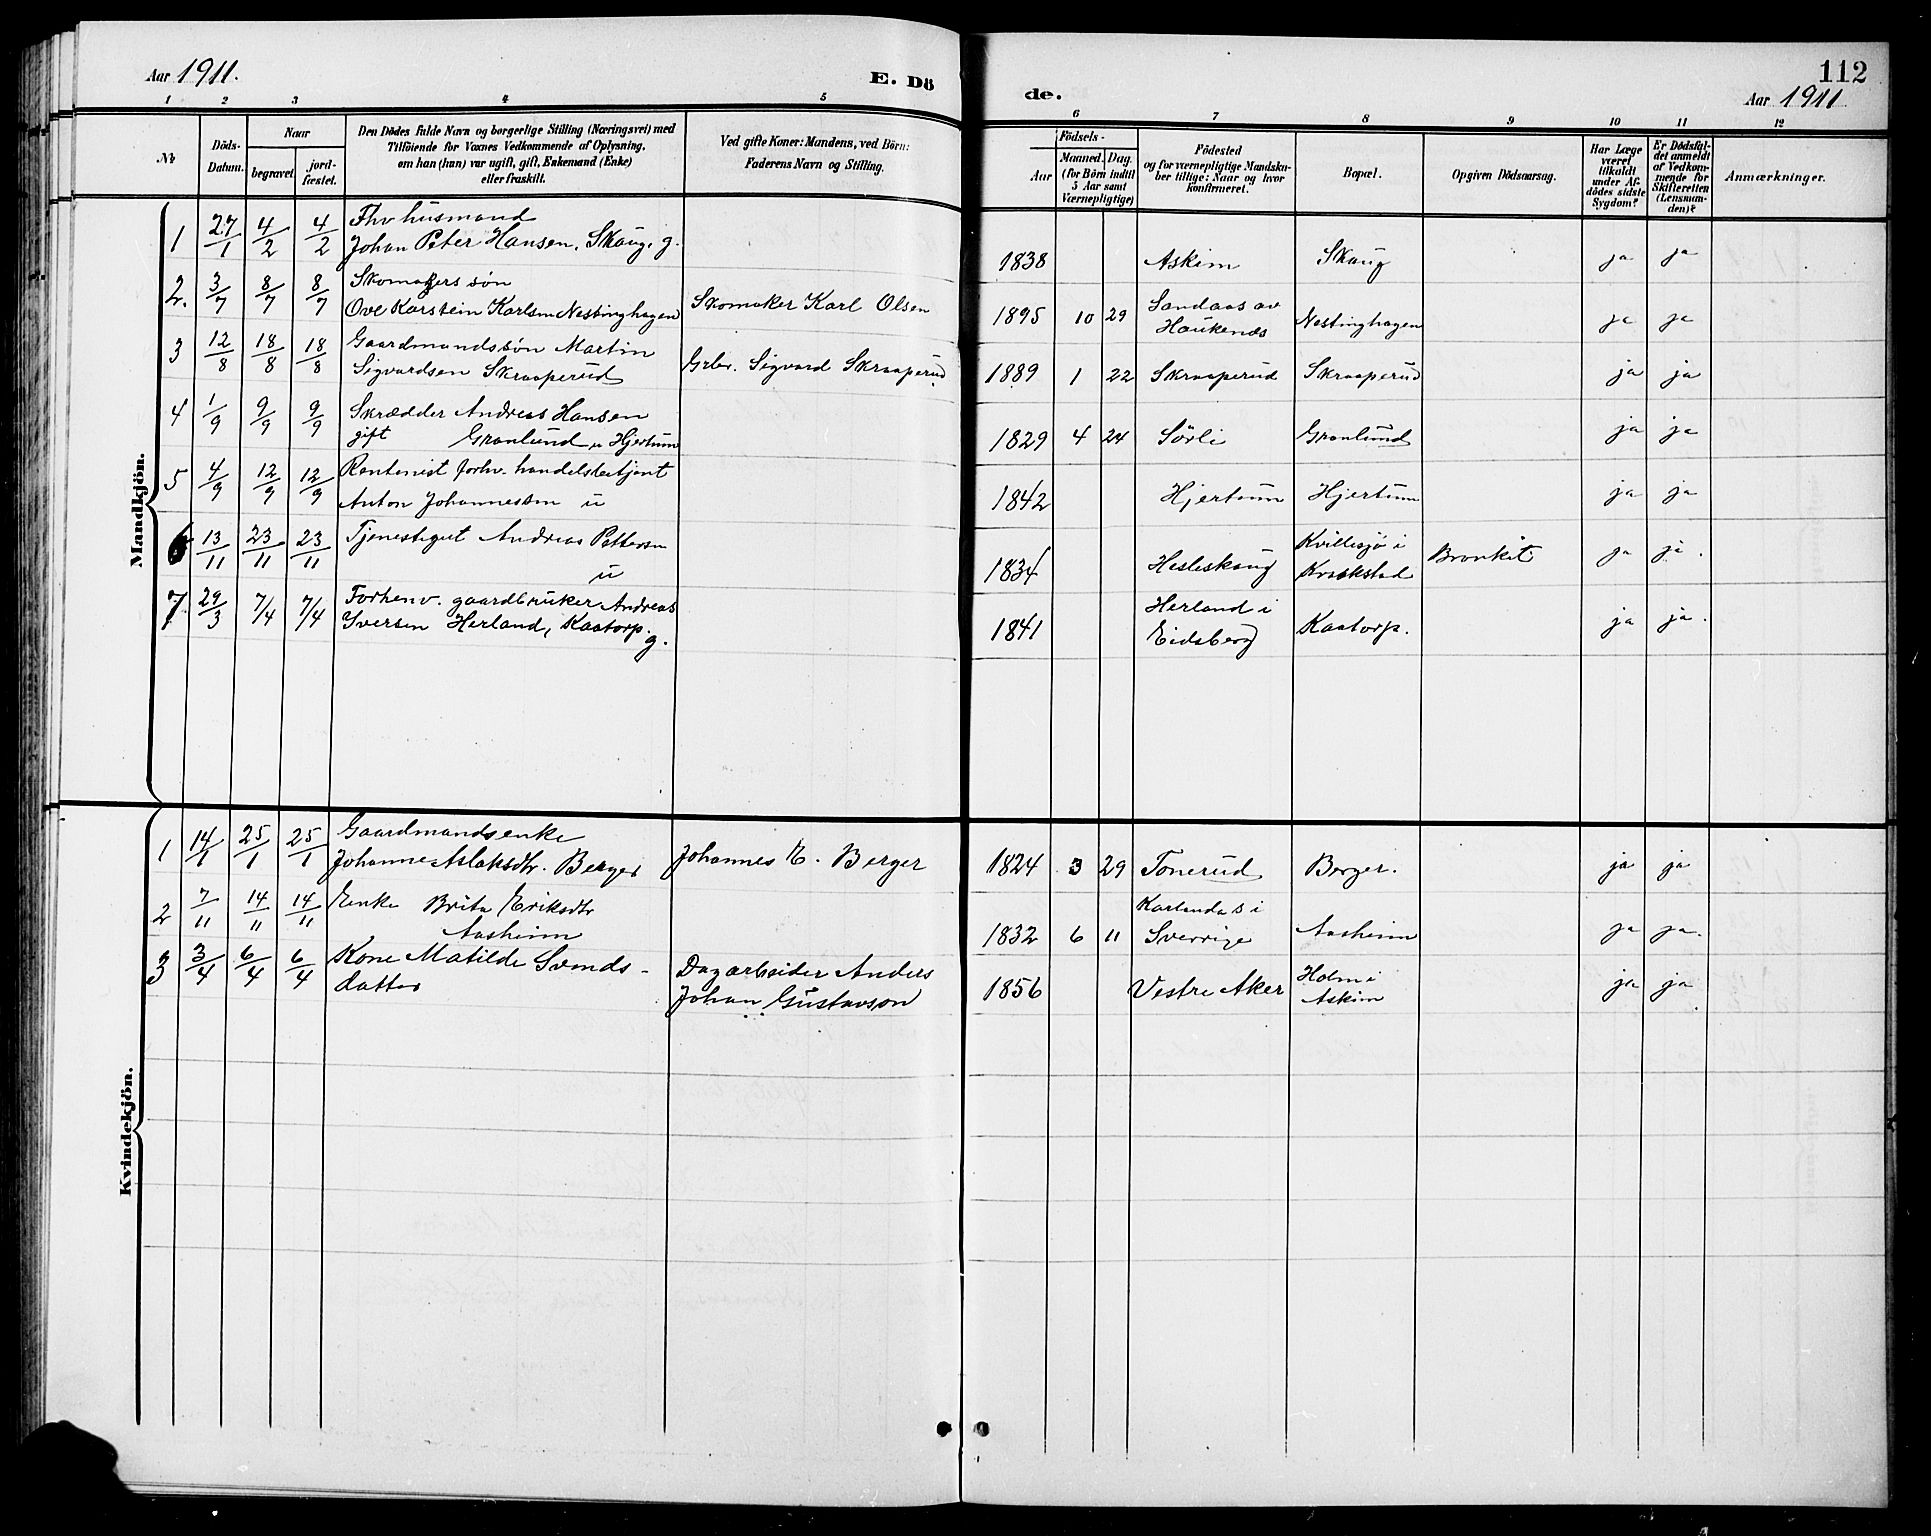 Aar 1911.
E. Dö
1 2 3 4 5
No
Döds-Datum.
Naar
begravet.
jord-fæstet.
Den Dödes fulde Navn og borgerlige Stilling (Næringsvei) med
Tilföiende for Voxnes Vedkommende af Oplysning,
om han (hun) var ugift, gift, Enkemand (Enke)
eller fraskilt.
Ved gifte Koner: Mandens, ved Börn:
Faderens Navn og Stilling.
Mandkjön.
1 27/1 4/2 4/2 Fhv husmand
Johan Peter Hansen, Skaug, g.
2. 3/7 8/7 8/7 Skomagers søn
Ove Karstein Karlsen Nestinghagen Skomaker Karl Olsen
3 12/8 18/8 18/8 Gaardmandssøn Martin
Sigvardsen Skraaperud Grbr. Sigvard Skraaperud
4 1/9 9/9 9/9 Skrædder Andreas Hansen
gift Granlund u Hjertum
5 4/9 12/9 12/9 Rentenist forhv. handelsbetjent
Anton Johannessen u
6 13/11 23/11 23/11 Tjenestegut Andreas Pettersen
u
7 29/3 7/4 7/4 Forhenv. gaardbruker Andreas
Iversen Herland, Kaatorp.
g.
Kvindekjön.
1 14/1 25/1 25/1 Gaardmandsenke
Johanne Aslaksdtr. Berger Johannes E. Berger
2 7/11 14/11 14/11 Enke Brita Eriksdtr
Aasheim
3 3/4 6/4 6/4 Kone Matilde Svends-
datter
Dagarbeider Anders
Johan Gustavson
112
de.
Aar 1911
6 7 8 9 10 11 12
Födsels-
Aar
Maaned. Dag.
(for Börn indtil
5 Aar samt
Værnepligtige)
Födested
og for værnepligtige Mandska-
ber tillige: Naar og hvor
konfirmeret.
Bopæl.
Opgiven Dödsaarsag.
Har Læge
været
tilkaldt
under Af-
dödes sidste
Sygdom?
Er Dödsfal-
det anmeldt
af Vedkom-
mende for
Skifteretten
(Lensman-
den)?
Anmærkninger.
1838 Askim Skaug ja ja
1895 10 29 Sandaas av
Haukenes Nestinghagen ja ja
1889 1 22 Skraaperud Skraaperud ja ja
1829 4 24 Sørli Granlund ja ja
1842 Hjertum Hjertum ja ja
1834 Hesleskaug Kvillesjø i
Kraakstad Bronkit ja ja.
1841 Herland i
Eidsberg Kaatorp. ja ja.
1824 3 29 Tonerud Berger. ja ja
1832 6 11 Karlanda S i
Sverrige Aasheim ja ja.
1856 Vestre Aker Holm i
Askim ja ja